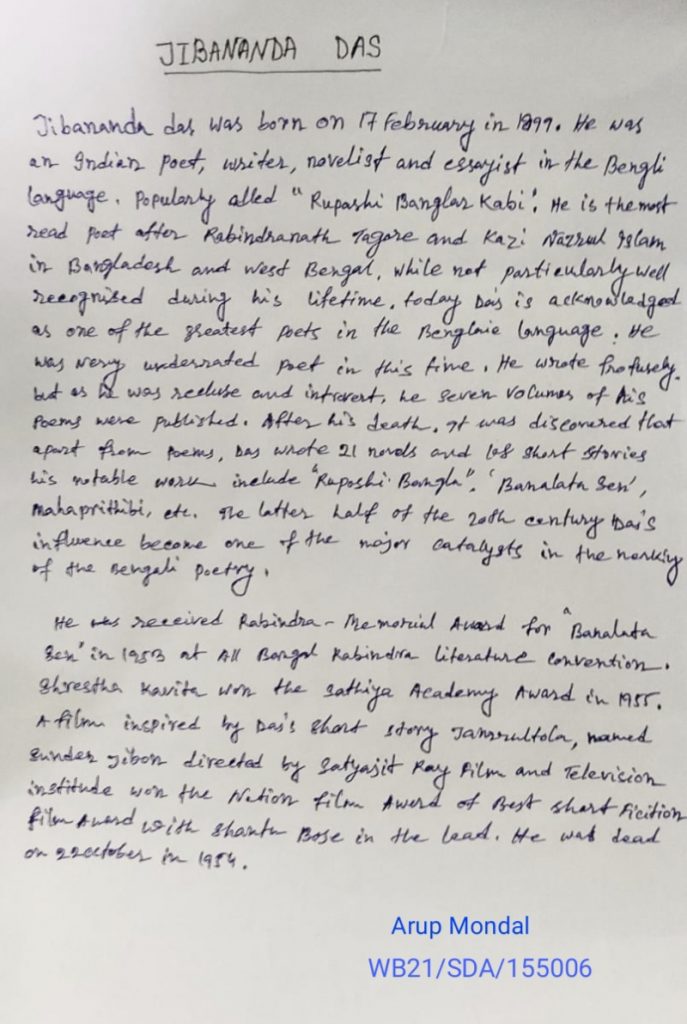 JIBANANDA DAS
Jibananda das was born on 17 February in 1899. He was
an Indian Poet, writer, novelist and essayist in the Bengli
language. Popularly alled "Rupashi Banglar Kabi". He is the most
read Poet after Rabindranath Tagore and Kazi Nazrul Islam
in Bangladesh and West Bengal, while not particularly well
recognised during his lifetime. today Das is acknowledged
as one of the greatest poets in the language. He
was very underrated Poet in this time. He wrote Profusely.
but as he was recluse and introvert, he seven volumes of his
Poems were published. After his death. It was discovered that
apart from Poems, Das wrote 21 novels and 108 short stories
his notable work include "Ruposhi Bangla", 'Banalata Sen',
Mahaprithibi, etc. The latter half of the 20th century Das's
influence become one of the major catalysts in the
of the Bengali Poetry.
He was received Rabindra-Memorial Award for "Banalata
Sen" in 1953 at All Bengal Rabindra literature convention.
Shrestha Kavita won the Sathiya Academy Award in 1955.
A film inspired by Das's short story Jamrultola, named
Sunder Jibon directed by Satyajit Ray Film and Television
institude won the Nation film Award of Best short Ficition
film Award with Shantu Bose in the lead. He was dead
on 22 october in 1954.
Arup Mondal
WB21/SDA/155006